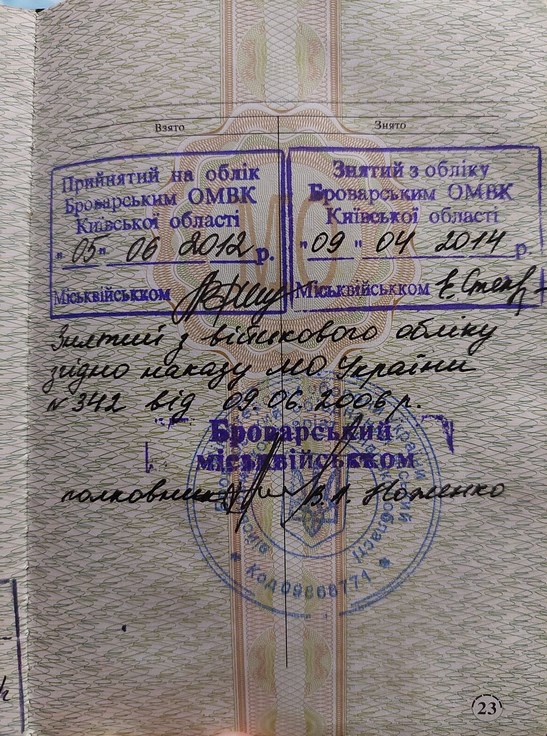 Взято
Знято
Прийнятий на облік
Броварським ОМВК
Київської області
"05" 06 2012 р.
Міськвійськком
Знятий з обліку
Броварським ОМВК
Київської області
"09" 04 2014 р.
Міськвійськком
Знятий з військового обліку
згідно наказу МО України
№ 342 від 09.06.2006 р.
Броварський
міськвійськком
полковник В.Л. Ноженко
* Код 09866771 *
23